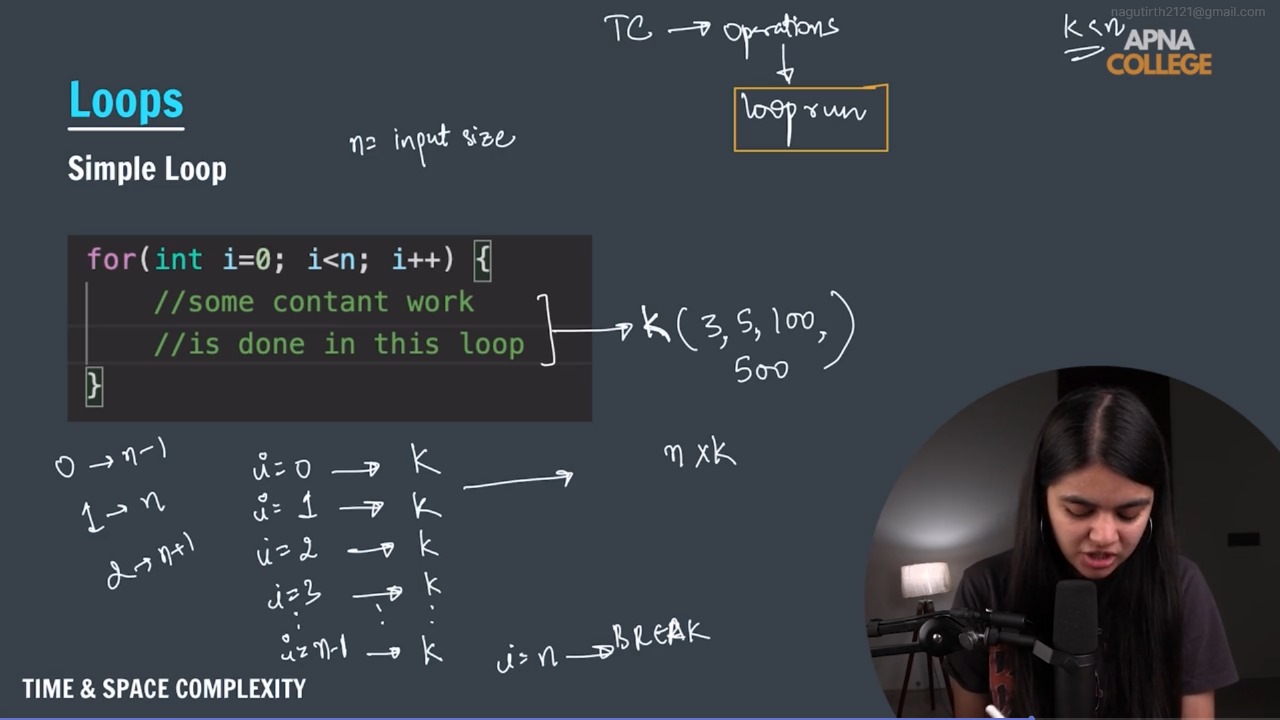 nagutirth2121@gmail.com
TC → operations
k<n
APNA
COLLEGE
Loops
loop run
n= input size
Simple Loop
for(int i=0; i<n; i++) {
//some contant work
//is done in this loop
}
K ( 3, 5, 100,
500 )
0 → n-1
1 → n
2 → n+1
i=0 → K
i= 1 → K
i=2 → K
i=3 → K
i=n-1 → K
n x K
i= n → BREAK
TIME & SPACE COMPLEXITY